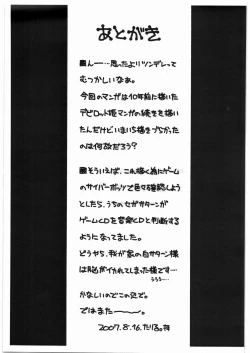 あとがき
■んー…思ったよりツンデレって
むつかしいなぁ。
今回のマンガは10年前に描いた
デビロット姫マンガの続きを描い
たんだけど、いまいち描きづらかった
のは何故だろう？
■そういえば、これ描く為にゲーム
のサイバーボッツで色々確認しよう
としたら、うちのセガサターンが
ゲームCDを音楽CDと判断する
ようになってました。
どうやら、我が家の白サターン様
は
がイカれてしまった様です…
ううう…
かなしいのでこの辺で。
ではまたーー。
2007.8.16.